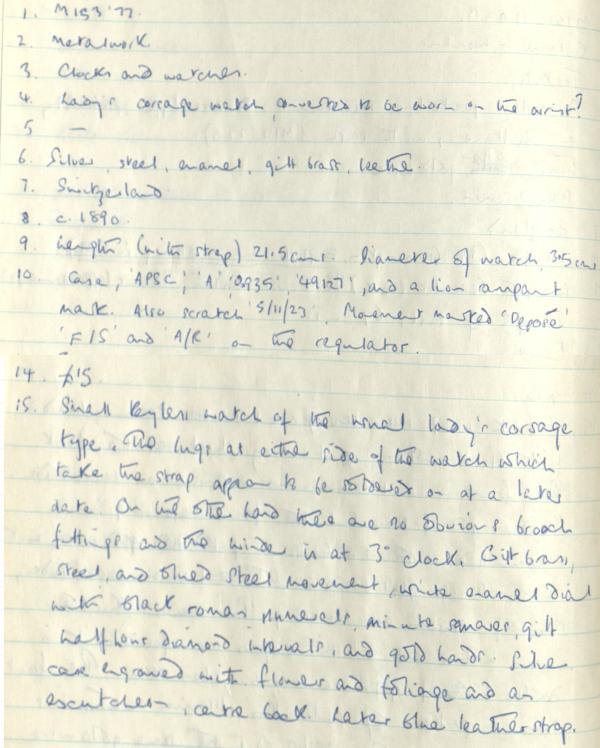 1. M163'77.
2. Metalwork
3. Clocks and watches.
4. Lady's corsage watch, converted to be worn on the wrist?
5 —
6. Silver, steel, enamel, gilt brass, leather.
7. Switzerland
8 c. 1890.
9. Length (with strap) 21.5cms. Diameter of watch 3.5cms
10. Case, 'APSC', 'A' '0,935' '49127', and a lion rampant
mark. Also scratch '5/11/23'. Movement marked 'Deposé'
'F/S' and 'A/R' on the regulator.
14. £15
15. Small keyless watch of the usual lady's corsage
type. The lugs at either side of the watch which
take the strap appear to be soldered on at a later
date. On the other hand there are no obvious brooch
fittings and the winder is at 3° clock. Gilt brass,
steel, and blued steel movement, white enamel dial
with black roman numerals, minute squares, gilt
half hour diamond intervals, and gold hands. Silver
case engraved with flowers and foliage and an
escutcheon, centre back. Later blue leather strap.